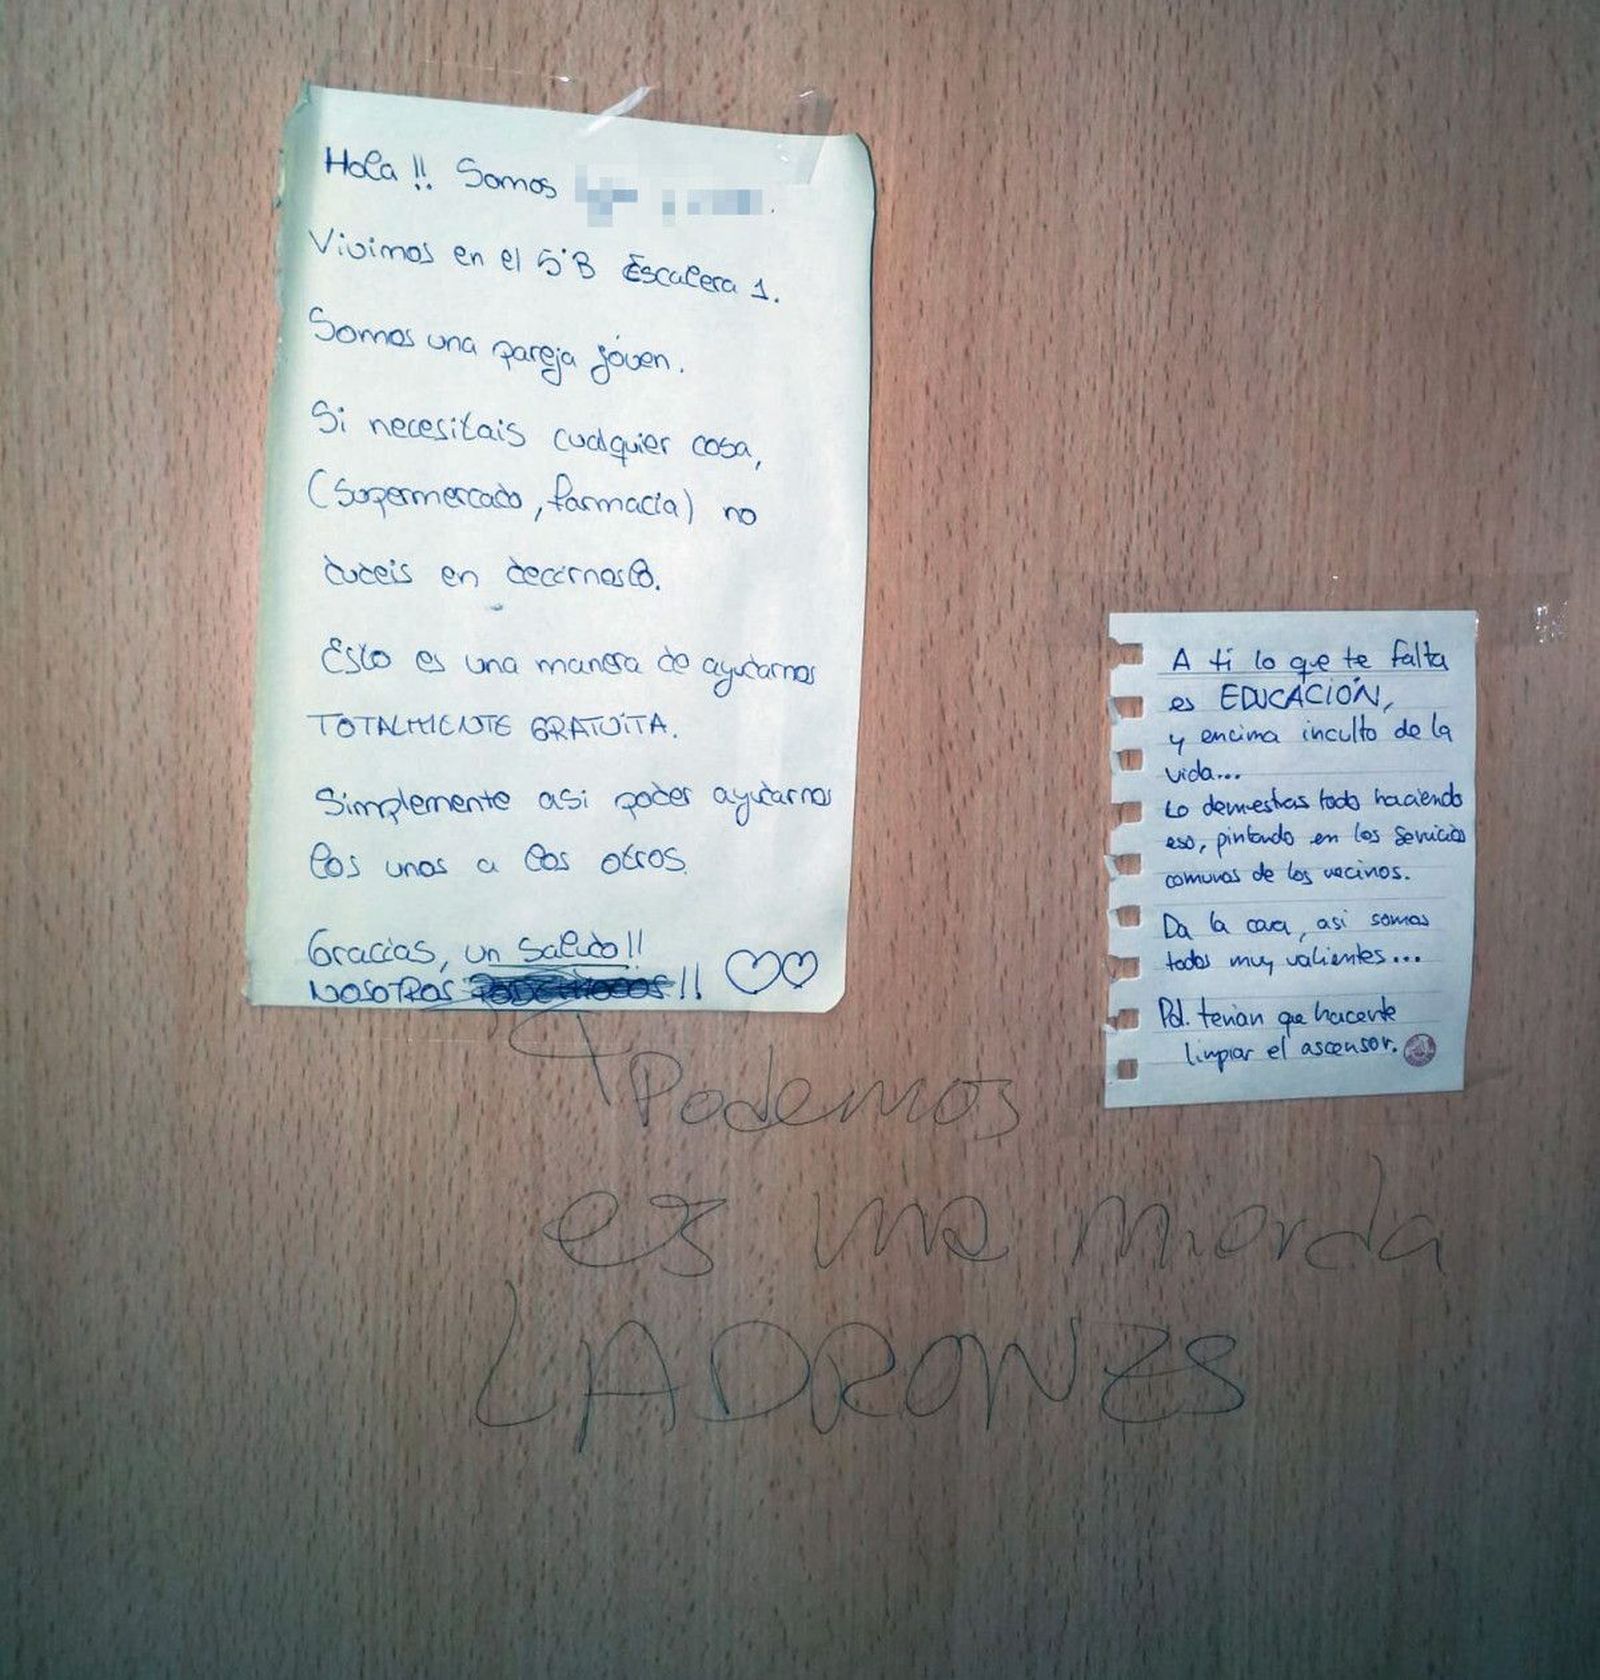 Hola!! Somos
Vivimos en el 5ºB Escalera 1.
Somos una pareja jóven.
Si necesitais cualquier cosa,
(supermercado, farmacia) no
dudeis en decirnoslo.
Esto es una manera de ayudarnos
TOTALMENTE GRATUITA.
Simplemente asi poder ayudarnos
los unos a los otros.
Gracias, un saludo!!
NOSOTROS PODEMOOOS!!
Podemos
es una mierda
LADRONES
A ti lo que te falta
es EDUCACIÓN,
y encima inculto de la
vida...
Lo demuestras todo haciendo
eso, pintando en los servicios
comunes de los vecinos.
Da la cara, asi somos
todos muy valientes...
Pd. tenian que hacerte
limpiar el ascensor.